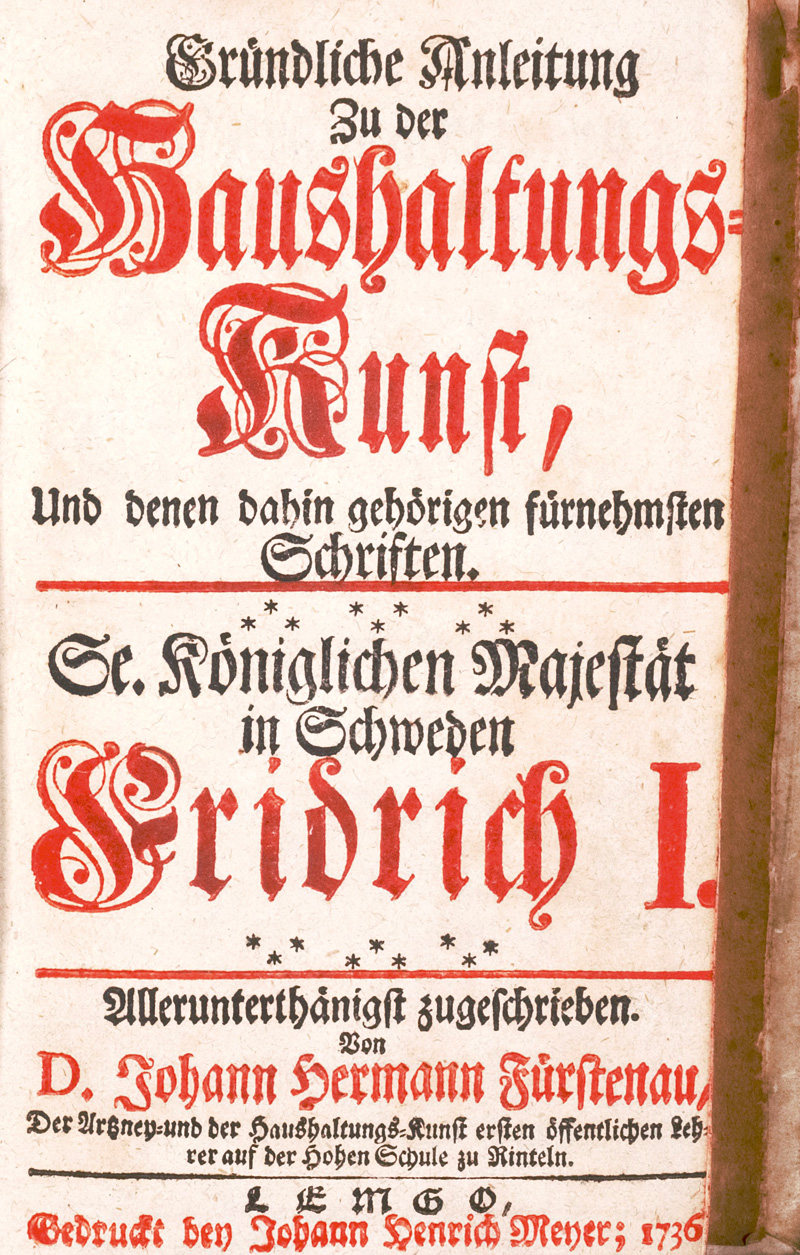 Gründliche Anleitung
Zu der
Haushaltungs-
Kunst,
Und denen dahin gehörigen fürnehmsten
Schriften.
* * * * *
* * * * *
Se. Königlichen Majestät
in Schweden
Fridrich I.
* * * * *
* * * *
Allerunterthänigst zugeschrieben.
Von
D. Johann Hermann Fürstenau,
Der Artzney-und der Haushaltungs-Kunst ersten öffentlichen Leh-
rer auf der Hohen Schule zu Rinteln.
LEMGO,
Gedruckt bey Johann Henrich Meyer; 1736